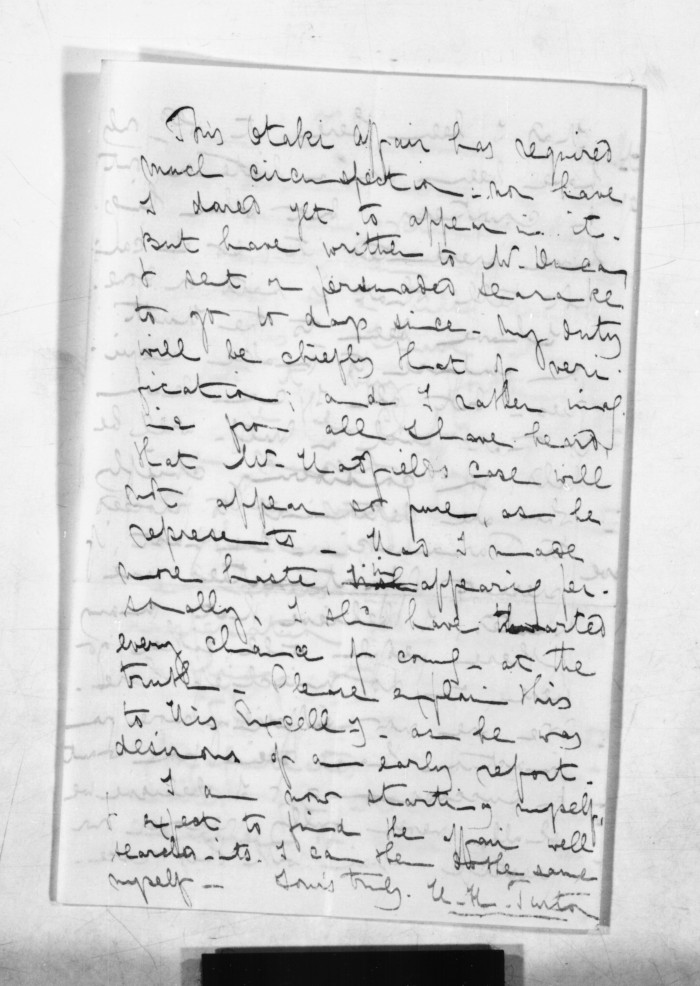 This Otaki affair has required
much circumspection - nor have
I dared yet to appear in it.
But have written to Mr.
& sent or persuaded
to go to do so since - My duty
will be chiefly that of veri-
fication; and I rather imag-
ine from all I have heard,
that Mr. Hadfield's case will
not appear so pure, as he
represents - Had I made
more haste, in appearing per-
sonally, I shd have thwarted
every chance of comg - at the
truth - Please explain this
to His Excell-y - as he was
desirous of an early report.
I am now starting myself,
& expect to find the affair well
searched into. I can then do the same
myself - Yours truly. H. H. Turton